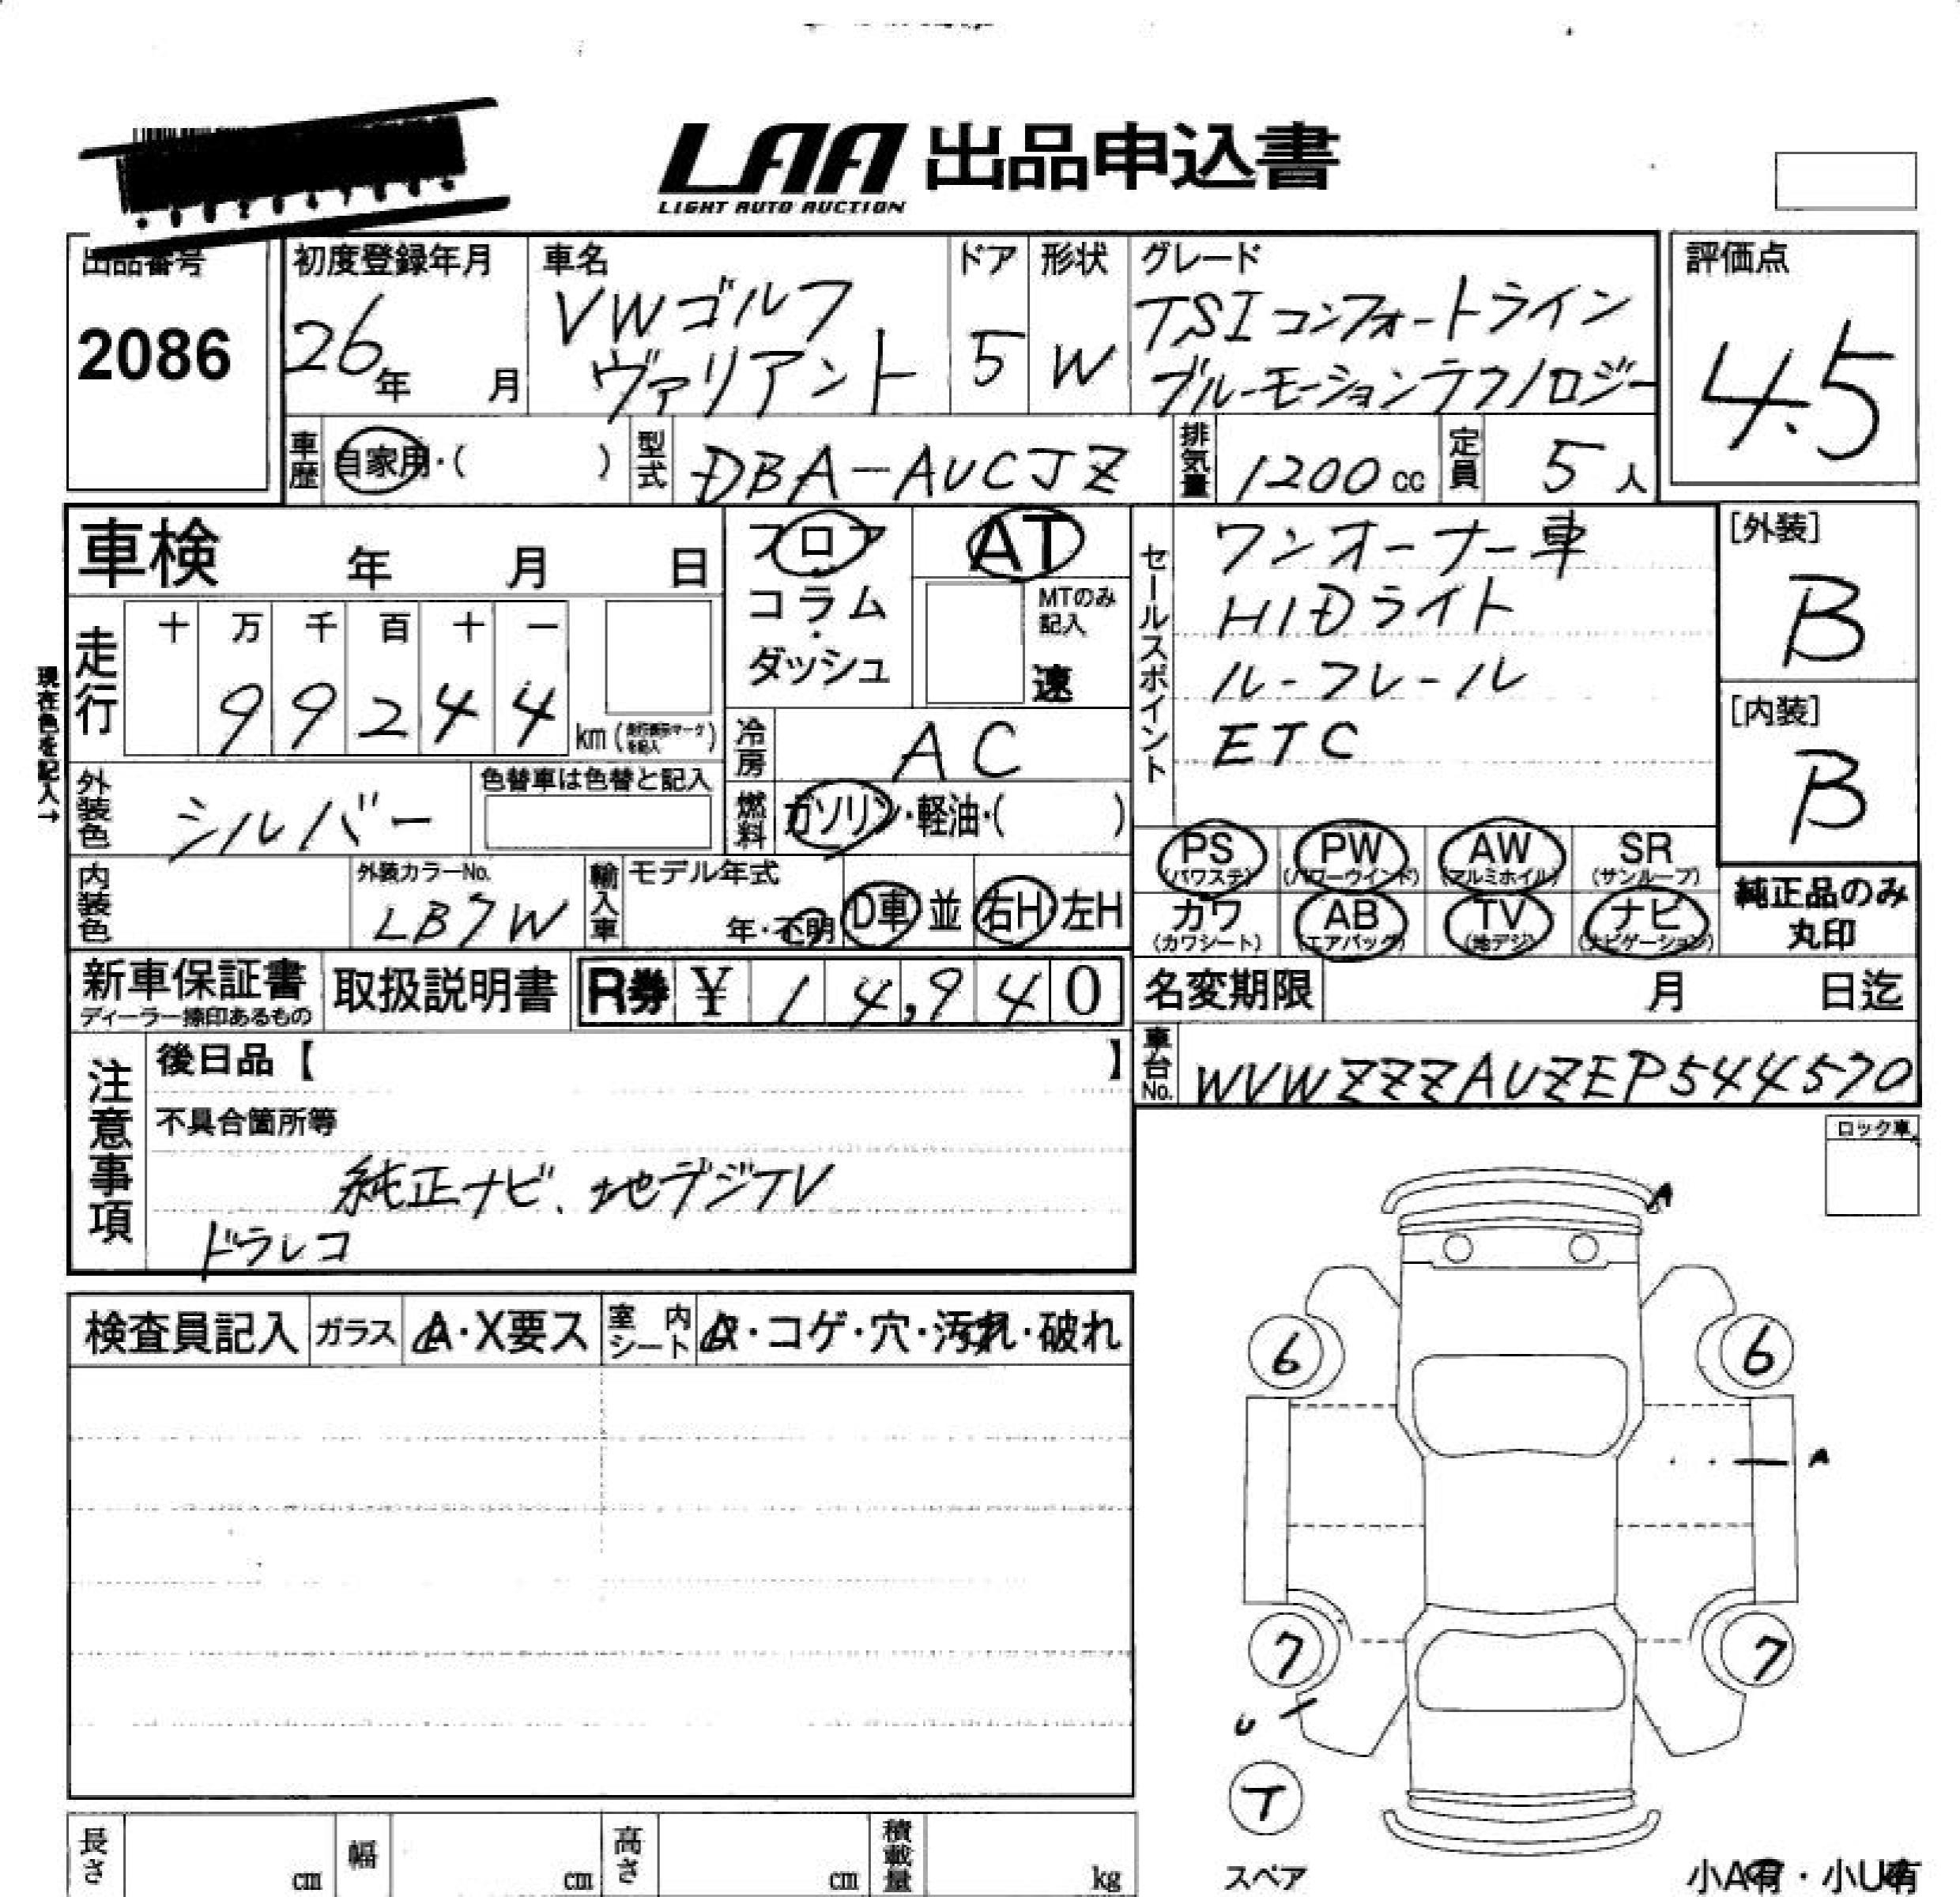 LAA 出品申込書
LIGHT AUTO AUCTION
出品番号
2086
初度登録年月
26年 月
車名
VWゴルフ
ヴァリアント
ドア
5
形状
W
グレード
TSIコンフォートライン
ブルーモーションテクノロジー
評価点
4.5
車歴 自家用・( )
型式 DBA-AUCJZ
排気量 1200cc
定員 5人
車検 年 月 日
現在色を記入→
走行
十 万 千 百 十 一
9 9 2 4 4 km(走行表示マークを記入)
フロア
・
コラム
・
ダッシュ
AT
MTのみ
記入
速
冷房 AC
燃料 ガソリン・軽油・( )
セールスポイント
ワンオーナー車
HIDライト
ルーフレール
ETC
[外装]
B
[内装]
B
外装色 シルバー
色替車は色替と記入
内装色
外装カラーNo.
LB7W
輸入車
モデル年式
年・不明
D車 並 右H 左H
PS (パワステ)
PW (パワーウインド)
AW (アルミホイル)
SR (サンルーフ)
カワ (カワシート)
AB (エアバック)
TV (地デジ)
ナビ (ナビゲーション)
純正品のみ
丸印
新車保証書
ディーラー捺印あるもの
取扱説明書
R券 ¥ 14,940
名変期限 月 日迄
車台No. WVWZZZAUZEP544570
注意事項
後日品【 】
不具合箇所等
純正ナビ、地デジTV
ドラレコ
ロック車
検査員記入
ガラス A・X要ス
室内シート ・コゲ・穴・汚れ・破れ
A
6 6
A
7 7
U
T
スペア
小A有・小U有
長さ cm
幅 cm
高さ cm
積載量 kg